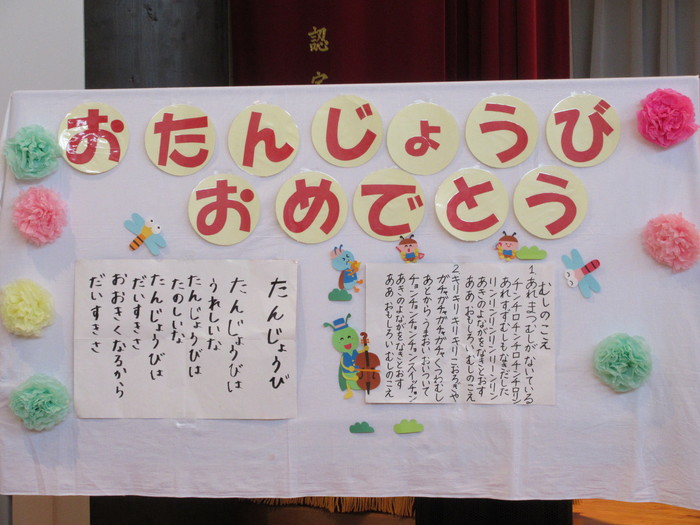 認定
おたんじょうび
おめでとう
たんじょうび
たんじょうびは
うれしいな
たんじょうびは
たのしいな
たんじょうびは
だいすきさ
おおきくなるから
だいすきさ
むしのこえ
1.あれまつむしがないている
チンチロチンチロチンチロリン
あれすずむしもなきだした
リンリンリンリンリーンリン
あきのよながをなきとおす
ああおもしろいむしのこえ
2キリキリキリキリこおろぎや
ガチャガチャガチャガチャくつわむし
あとからうまおいおいついて
チョンチョンチョンチョンスイッチョン
あきのよながをなきとおす
ああおもしろいむしのこえ